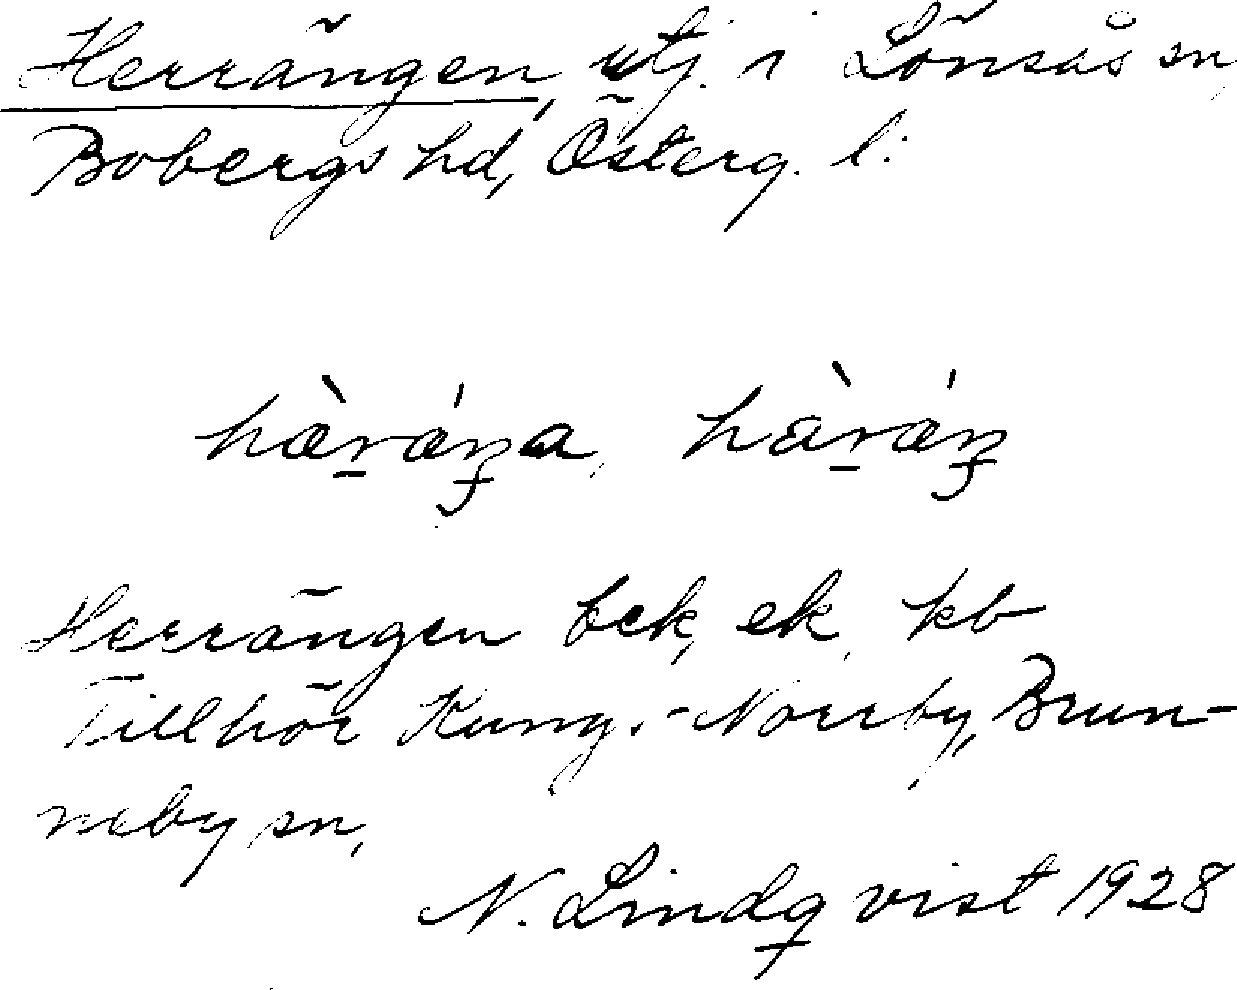 Herrängen, utj. i Lönsås sn,
Bobergs hd, Österg. l:
hæ̀r̠ǽŋa, hàr̠ǽŋ
Herrängen bek, ek, kb
Tillhör Kungs-Norrby, Brun-
neby sn,
N. Lindqvist 1928